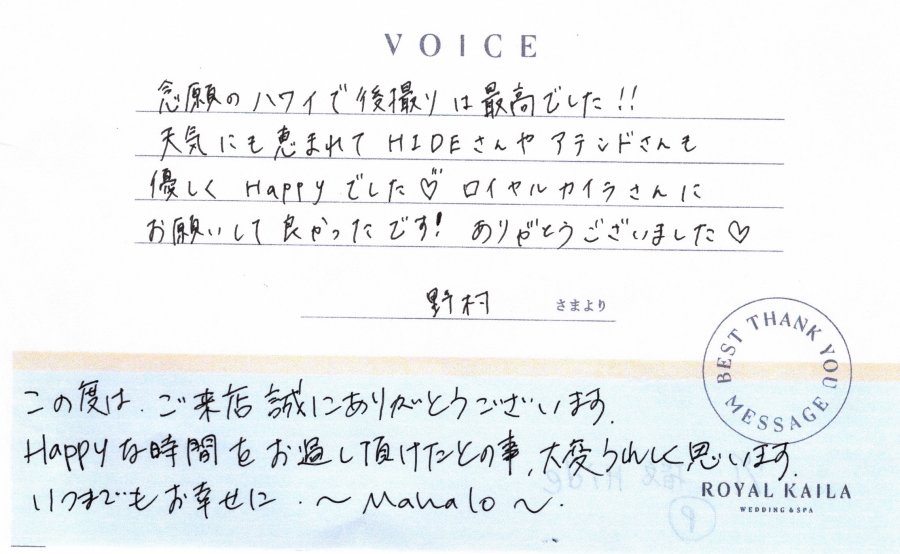 VOICE
念願のハワイで後撮りは最高でした!!
天気にも恵まれてHIDEさんやアテンドさんも
優しくHappyでした♡ ロイヤルカイラさんに
お願いして良かったです! ありがとうございました♡
野村 さまより
BEST THANK YOU MESSAGE
この度は、ご来店誠にありがとうございます。
Happyな時間をお過し頂けたとの事、大変うれしく思います。
いつまでもお幸せに. ～Mahalo～.
ROYAL KAILA
WEDDING & SPA